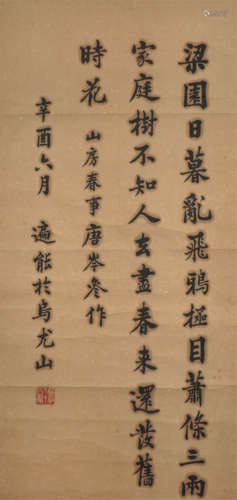 梁園日暮亂飛鴉極目蕭條三兩
家庭樹不知人去盡春來還發舊
時花 山房春事唐岑參作
辛酉六月 遍能於烏尤山